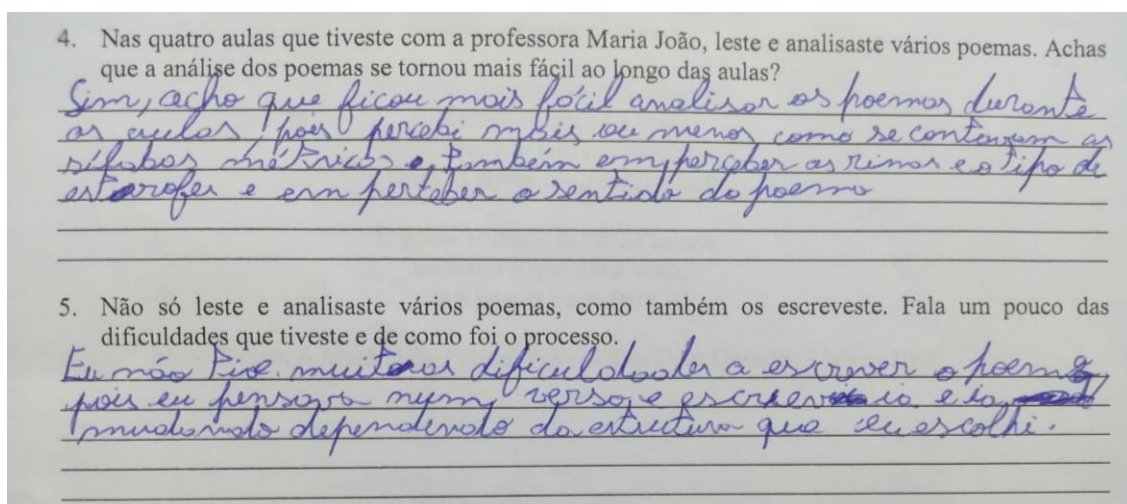 4. Nas quatro aulas que tiveste com a professora Maria João, leste e analisaste vários poemas. Achas
que a análise dos poemas se tornou mais fácil ao longo das aulas?
Sim, acho que ficou mais fácil analisar os poemas durante
as aulas, pois percebi mais ou menos como se contavam as
sílabas métricas e também em perceber as rimas e o tipo de
estrofes e em perceber o sentido do poema
5. Não só leste e analisaste vários poemas, como também os escreveste. Fala um pouco das
dificuldades que tiveste e de como foi o processo.
Eu não tive muitas dificuldades a escrever o poema,
pois eu pensava num verso e escrevia e ia
mudando dependendo da estrutura que eu escolhi.